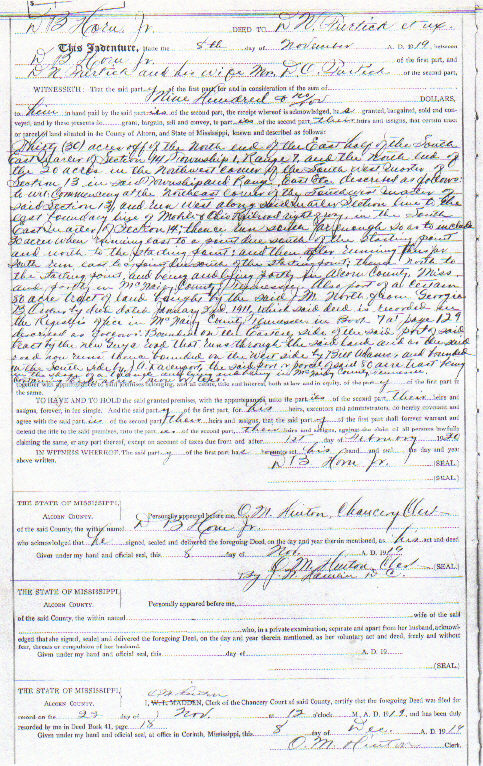 D B Horn, Jr. DEED TO D. N. Furtick et ux.
This Indenture, Made the 8th day of November A. D. 1919 between
D B Horn Jr of the first part, and
D N Furtick and his wife Mrs. D. C. Furtick of the second part,
WITNESSETH: That the said party of the first part for and in consideration of the sum of
Nine Hundred & no/100 DOLLARS,
to him in hand paid by the said parties of the second part, the receipt whereof is acknowledged, has granted, bargained, sold and conveyed, and by these presents do grant, bargain, sell and convey, to parties of the second part, their heirs and assigns, that certain tract
or parcel of land situated in the County of Alcorn, and State of Mississippi, known and described as follows:
Thirty (30) acres off of the North end of the East half of the South
East Quarter of Section 14, Township 1, Range 7, and the North end of
the 20 acres in the Northwest corner of the South West Quarter
Section 13 in said Township and Range East Etc. described as follows
to wit: Commencing at the Northeast Corner of the Southwest Quarter of
said Section 13, and run West along said Quarter Section line to the
East boundary line of Mobile & Ohio Railroad right of way in the South
East Quarter of Section 14; thence run south far enough so as to include
30 acres when running east to a point due south of the starting point
and north to the starting point; and then after running
South run east to a point due south of the starting point, thence north to
the starting point, and being and lying partly in Alcorn County, Miss.
and partly in McNairy County, Tennessee. Also part of a certain
80 acre tract of land bought by the said J. M. North from George
B. by deed dated January 2nd 1911, which said deed is recorded in
the Register's office in McNairy County, Tennessee in Book 9 at page 129
described as follows: Bounded on the Eastern side of the said
East by the new Guys road that runs through the said land and as the said
road now runs thence bounded on the West side by Bill Adams and bounded
on the South side by J. O. the said part or parcel of said 80 acre tract being
in McNairy County Tennessee
the same.
TO HAVE AND TO HOLD the said granted premises, with the appurtenances unto the parties of the second part, their heirs and
assigns, forever, in fee simple. And the said party of the first part, for his heirs, executors and administrators, do hereby covenant and
agree with the said parties of the second part, their heirs and assigns, that the said party of the first part shall forever warrant and
defend the title to the said premises, unto the parties of the second part, their heirs and assigns, against the claim of all persons lawfully
claiming the same, or any part thereof, except on account of taxes due from and after 1st day of February 1920
IN WITNESS WHEREOF, The said party of the first part has hereunto set his hand and seal the day and year
above written. D B Horn Jr. (SEAL.)
(SEAL.)
THE STATE OF MISSISSIPPI,
ALCORN COUNTY. Personally appeared before me, O. M. Hinton, Chancery Clerk
of the said County, the within named D B Horn Jr.
who acknowledged that he signed, sealed and delivered the foregoing Deed, on the day and year therein mentioned, as his act and deed
Given under my hand and official seal, this 8 day of Nov. A. D. 1919
O. M. Hinton, Clerk (SEAL.)
By D. C.
THE STATE OF MISSISSIPPI,
ALCORN COUNTY. Personally appeared before me
of the said County, the within named wife of the said
who, in a private examination, separate and apart from her husband, acknowledged that she signed, sealed and delivered the foregoing Deed, on the day and year therein mentioned, as her voluntary act and deed, freely and without
fear, threats or compulsion of her husband.
Given under my hand and official seal, this day of A. D. 19
(SEAL.)
THE STATE OF MISSISSIPPI, O M Hinton
ALCORN COUNTY. I, W. T. MADDEN, Clerk of the Chancery Court of said county, certify that the foregoing Deed was filed for
record on the 29 day of Nov. at 12 o'clock M., A. D. 1919, and has been duly
recorded by me in Deed Book 41, page 18
Given under my hand and official seal, at office in Corinth, Mississippi, this 8 day of Dec. A. D. 1919
O. M. Hinton Clerk.